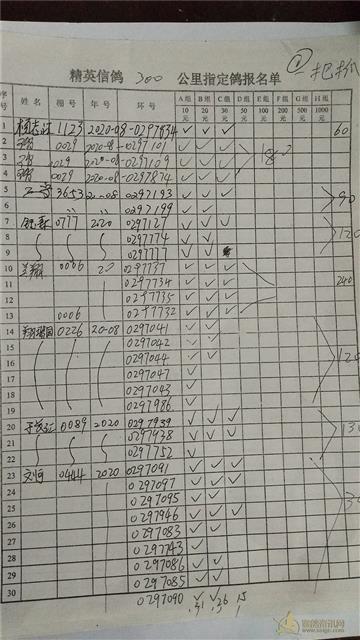 ① 一把抓
精英信鸽 300 公里指定鸽报名单
序号 姓名 棚号 年号 环号 A组10元 B组20元 C组30元 D组50元 E组100元 F组200元 G组500元 H组1000元
1 1123 2020-08-0297834 ✓ ✓ ✓ 60
2 0029 2020-08-0297101 ✓ ✓ ✓
3 0029 2020-08-0297109 ✓ ✓ ✓ 180
4 0029 2020-08-0297874 ✓ ✓ ✓
5 3653 2020-08 0297193 ✓ ✓
6 〃 〃 0297199 ✓ ✓ 90
7 0777 2020 0297127 ✓ ✓ ✓
8 0297774 ✓ ✓ 120
9 0297777 ✓ ✓
10 兰翔 0006 20 0297737 ✓ ✓ ✓
11 0297734 ✓ ✓ ✓ 240
12 0297735 ✓ ✓ ✓
13 0006 0297732 ✓ ✓ ✓
14 0226 20-08 0297041 ✓ ✓
15 0297042 ✓
16 0297044 ✓ ✓
17 0297047 ✓ 120
18 0297043 ✓
19 0297986 ✓ ✓
20 0089 2020 0297939 ✓ ✓ ✓
21 0297938 ✓ ✓ ✓ 130
22 0297752 ✓
23 文恒 0444 2020 0297091 ✓ ✓ ✓
24 0297097 ✓ ✓ ✓
25 0297095 ✓ ✓
26 0297946 ✓ ✓ ✓
27 0297083 ✓ ✓
28 0297743 ✓
29 0297086 ✓ ✓
30 0297085 ✓ ✓
0297090 ✓ ✓
31 26 15